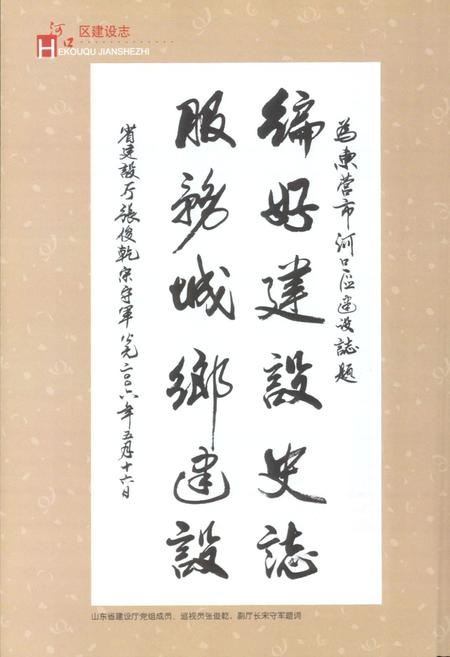 河口区建设志
HEKOUQU JIANSHEZHI
为东营市河口区建设誌题
编好建设史誌
服務城鄉建設
省建设厅张俊乾宋守军公元二00六年五月十六日
山东省建设厅党组成员、巡视员张俊乾，副厅长宋守军题词